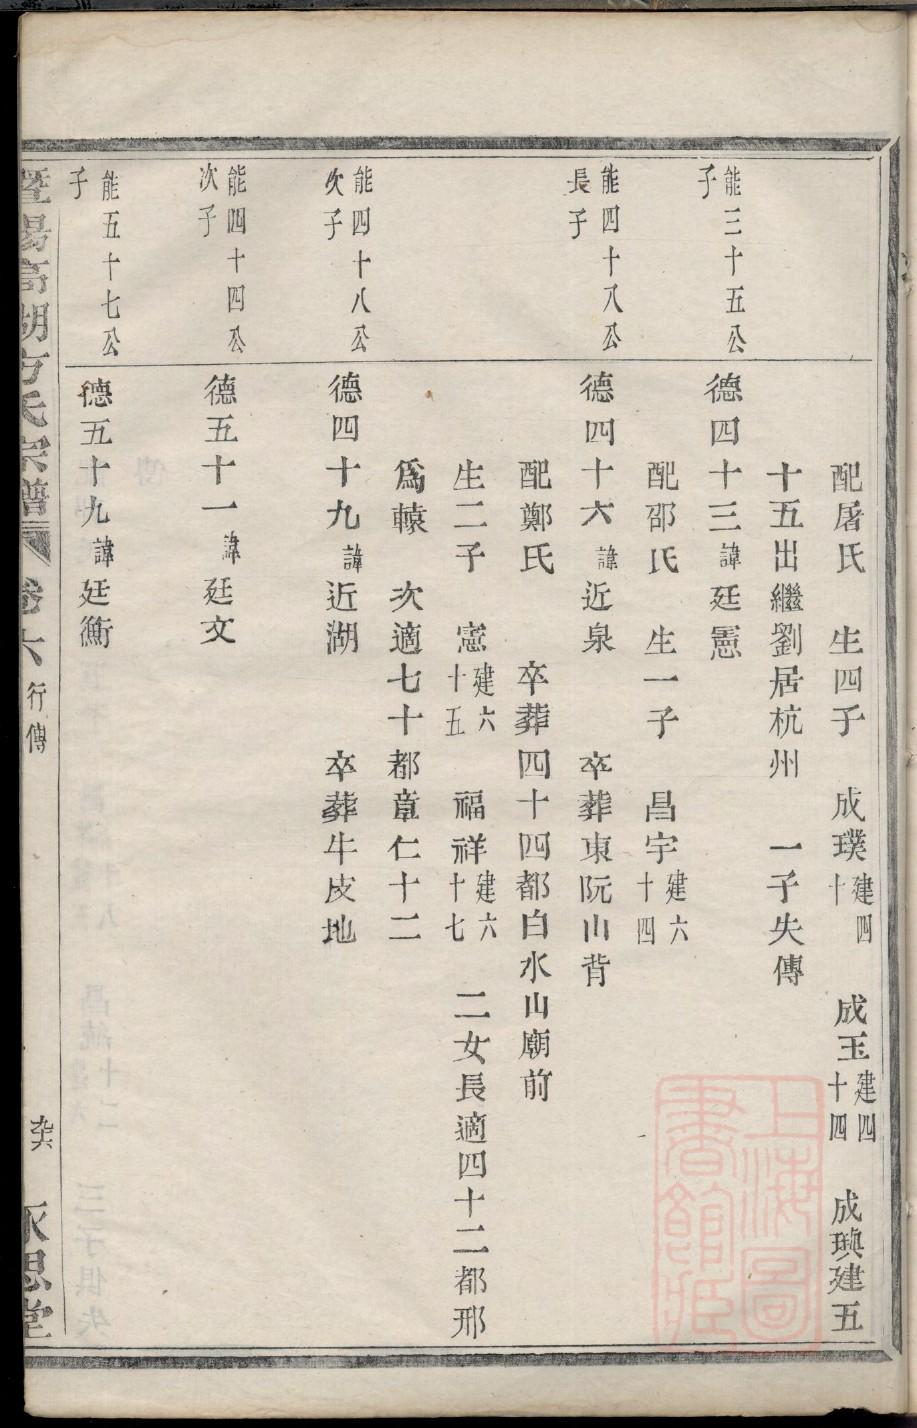 配屠氏　生四子　成璞建四十　成玉建四十四　成璵建五
十五出繼劉居杭州　一子失傳
能三十五公子
德四十三諱廷憲
配邵氏　生一子　昌宇建六十四
能四十八公長子
德四十六諱近泉　卒葬東阮山背
配鄭氏　卒葬四十四都白水山廟前
生二子　憲建六十五　福祥建六十七　二女長適四十二都邢
爲轅　次適七十都章仁十二
能四十八公次子
德四十九諱近湖　卒葬牛皮地
能四十四公次子
德五十一諱廷文
能五十七公子
德五十九諱廷衡
暨陽高湖方氏宗譜　卷六　行傳　永思堂
上海圖書館藏